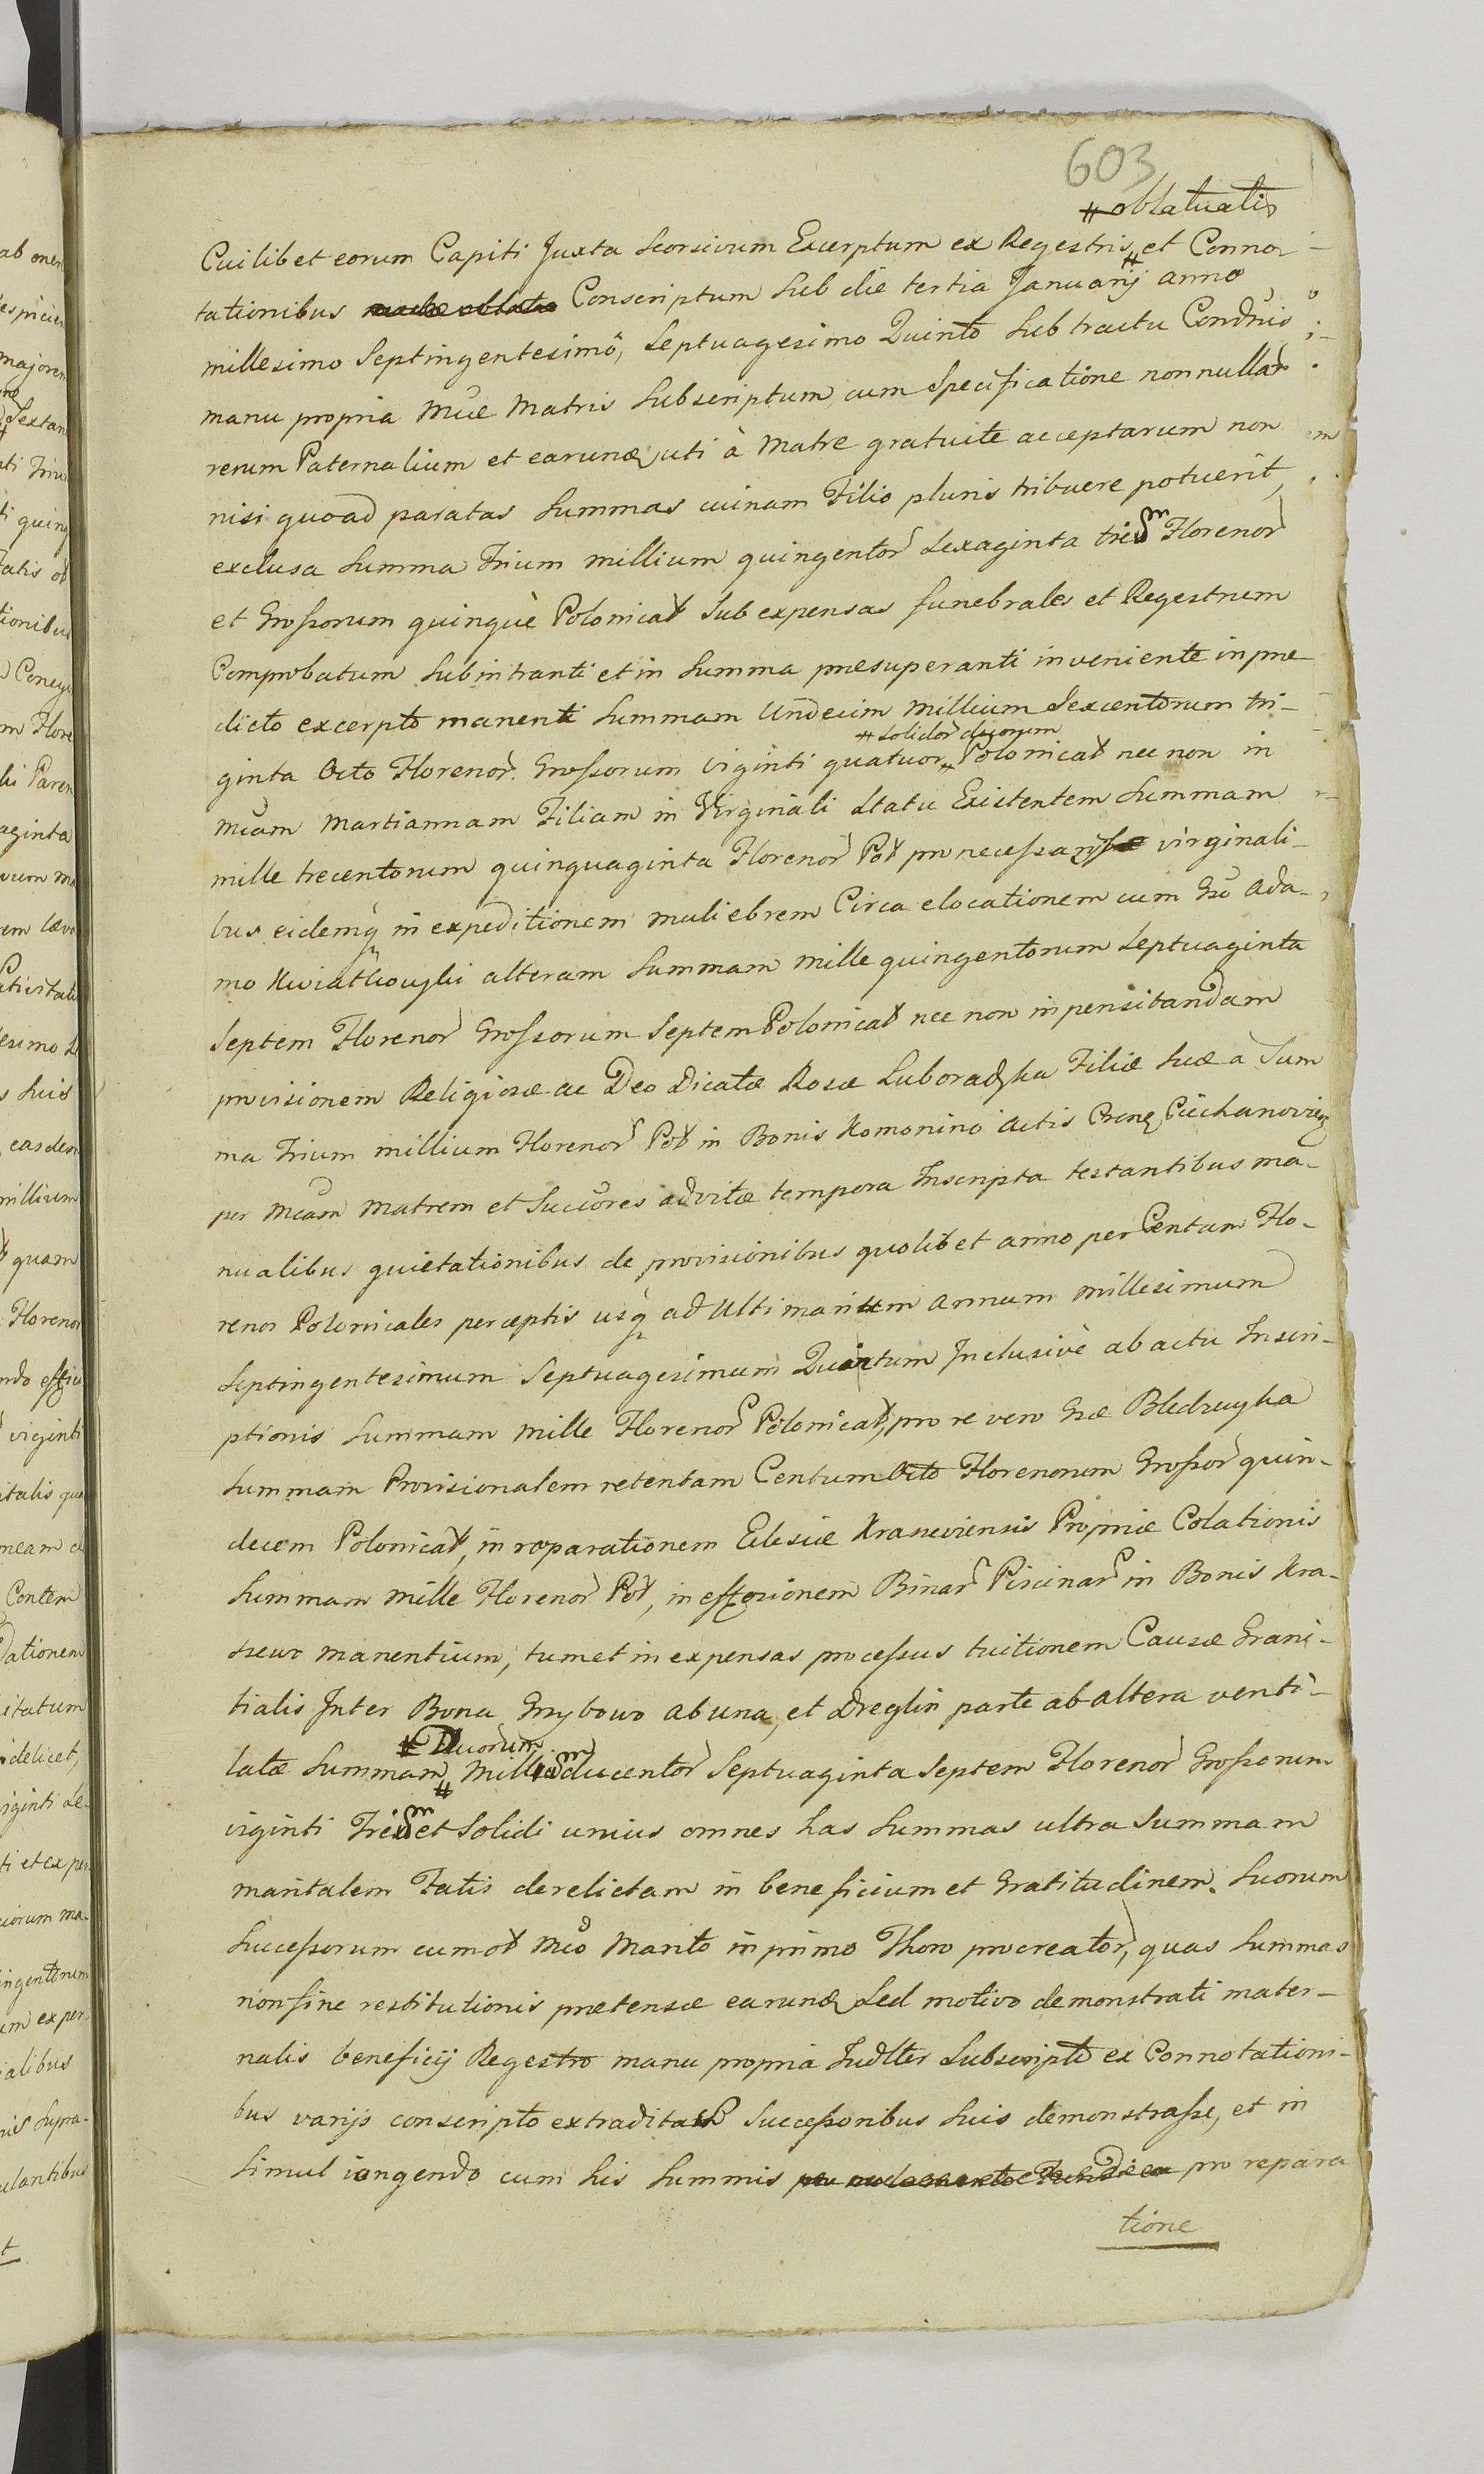 603
# oblatuatis
Cuilibet eorum Capiti Juxta Seorsivum Excerptum ex Regestris # et Conno-
tationibus Conscriptum Sub die tertia Januarij anno
millesimo Septingentesimo, Septuagesimo Quinto Sub tractu Condnis
manu propria Mcæ Matris Subscriptum, cum Specificatione nonnullar
rerum Paternalium et earundq uti à Matre gratuite acceptarum non
nisi quoad paratas Summas cuinam Filio pluris tribuere potuerit,
exclusa Summa Trium millium quingentor Sexaginta trium Florenor
et Grossorum quinque Polonical Sub expensas funebrales et Regestrum
Comprobatum Subintranti et in Summa presuperanti inveniente in pre
dicto excerpto manenti Summam Undecim Millium Sexcentorum tri-
# Solidor duorum
ginta Octo Florenor. Grossorum viginti quatuor # Polonical nec non in
Mcam Martiannam Filiam in Virginali Statu Existentem Summam
mille trecentorum quinquaginta Florenor Pol pro necessarijs virginali-
bus eidemq in expeditionem muliebrem Circa elocationem cum Gso Ada-
mo Kwiatkowski alteram Summam mille quingentorum Septuaginta
Septem Florenor Grossorum Septem Polonical nec non in pensitandam
provisionem Religiosæ ac Deo Dicatæ Rosæ Luboradzka Filiæ Suæ a Sum
ma Trium millium Florenor Pol in Bonis Komonino Actis Crenq Ciechanovien
per Mcam Matrem et Succores ad vitæ tempora Inscripta testantibus ma-
nualibus quietationibus de provisionibus quolibet anno per Centum Flo-
renos Polonicales perceptis usq ad Ultimarium annum millesimum
Septingentesimum Septuagesimum Quintum Inclusivè ab actu Inscri-
ptionis Summam mille Florenor Polonical, pro re vero Gsæ Bledzewska
Summam Provisionalem retentam Centum Octo Florenorum Grossor quin-
decem Polonical, in reparationem Eclesiæ Krasneviensis Propriæ Colationis
Summam mille Florenor Pol, in effosionem Binar Piscinar in Bonis Kra-
snewo manentium, tum et in expensas processus tuitionem Causæ Grani-
tialis Inter Bona Grzybowo ab una, et Dreglin parte ab altera venti-
# Duorum
latæ Summam # Millium ducentor Septuaginta Septem Florenor Grossorum
viginti Trium et Solidi unius omnes has Summas ultra Summam
maritalem Fatis derelictam in beneficium et Gratitudinem Suorum
Successorum cum ol Mco Marito in primo Thoro procreator, quas Summas
non fine restitutionis pretensæ earundq Sed motivo demonstrati mater-
nalis beneficij Regestro manu propria Judlter Subscripto ex Connotationi-
bus varijs conscripto extraditas Successoribus Suis demonstrasse, et in
Simul iongendo cum his Summis pro repara
tione